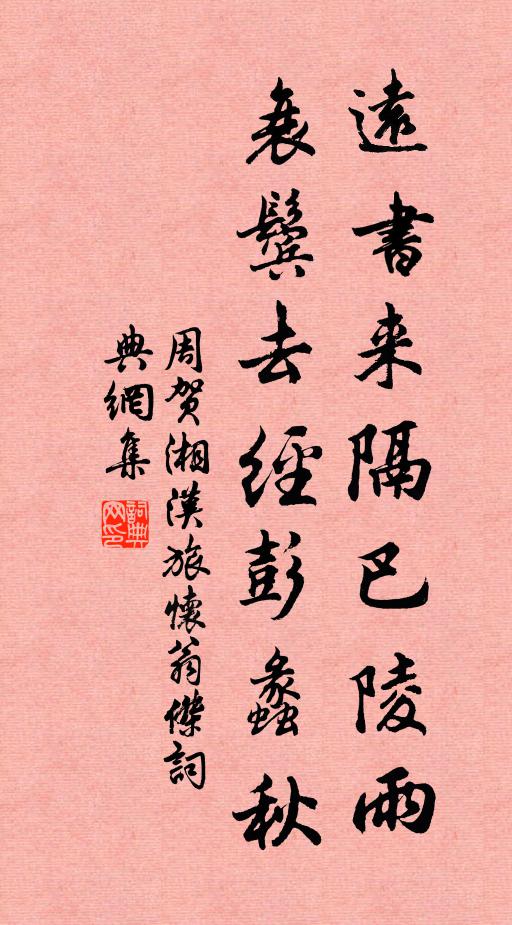 遠書来隔巴陵雨
衰鬢去經彭蠡秋
周賀湘漢旅懷翁傑詞
典網集
詞典网印